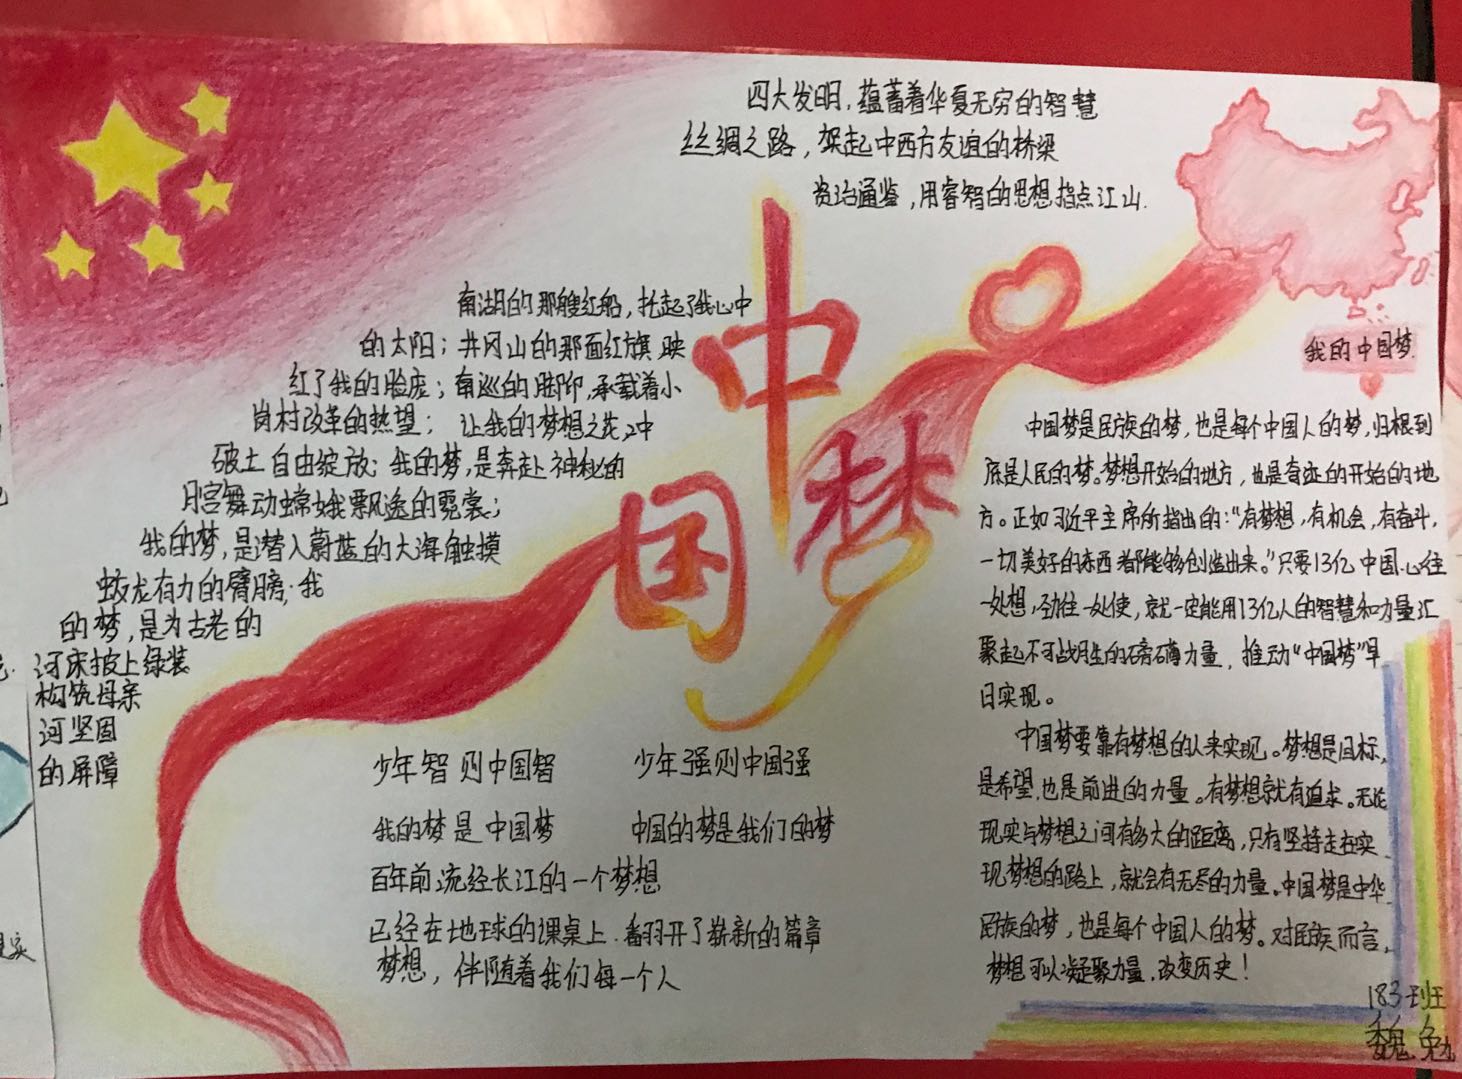 四大发明，蕴蓄着华夏无穷的智慧
丝绸之路，架起中西方友谊的桥梁
资治通鉴，用睿智的思想指点江山.
中国梦
南湖的那艘红船，托起了我心中
的太阳；井冈山的那面红旗映
红了我的脸庞；南巡的脚印，承载着小
岗村改革的热望； 让我的梦想之花冲
破土自由绽放；我的梦，是奔赴神秘的
月宫舞动嫦娥飘逸的霓裳；
我的梦，是潜入蔚蓝的大海触摸
蛟龙有力的臂膀；我
的梦，是为古老的
河床披上绿装
构筑母亲
河坚固
的屏障
少年智则中国智 少年强则中国强
我的梦是中国梦 中国的梦是我们的梦
百年前流经长江的一个梦想
已经在地球的课桌上.翻开了崭新的篇章
梦想，伴随着我们每一个人
我的中国梦.
中国梦是民族的梦，也是每个中国人的梦，归根到
底是人民的梦。梦想开始的地方，也是奇迹的开始的地
方。正如习近平主席所指出的：“有梦想，有机会，有奋斗，
一切美好的东西都能够创造出来。”只要13亿中国心往
一处想，劲往一处使，就一定能用13亿人的智慧和力量汇
聚起不可战胜的磅礴力量，推动“中国梦”早
日实现。
中国梦要靠有梦想的人来实现。梦想是目标，
是希望，也是前进的力量。有梦想就有追求。无论
现实与梦想之间有多大的距离，只有坚持走在实
现梦想的路上，就会有无尽的力量。中国梦是中华
民族的梦，也是每个中国人的梦。对民族而言，
梦想可以凝聚力量，改变历史！
183班
魏勉